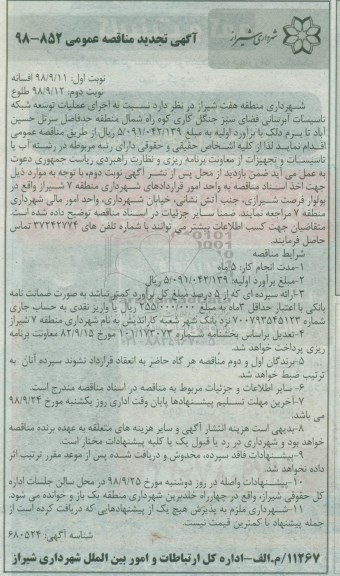 شهرداری شیراز
آگهی تجدید مناقصه عمومی ۸۵۲-۹۸
نوبت اول: ۹۸/۹/۱۱ افسانه
نوبت دوم: ۹۸/۹/۱۲ طلوع
شهرداری منطقه هفت شیراز در نظر دارد نسبت به اجرای عملیات توسعه شبکه
تاسیسات آبرسانی فضای سبز جنگل کاری کوه راه شمال منطقه حدفاصل سرتل حسین
آباد تا سرم دلک با برآورد اولیه به مبلغ ۵/۰۹۱/۰۴۲/۱۳۹ ریال از طریق مناقصه عمومی
اقدام نماید لذا از کلیه اشخاص حقیقی و حقوقی دارای رتبه مربوطه در رشته آب یا
تاسیسات و تجهیزات از معاونت برنامه ریزی و نظارت راهبردی ریاست جمهوری دعوت
به عمل می آید ضمن بازدید از محل پس از نشر آگهی نوبت دوم، با توجه به موارد ذیل
جهت اخذ اسناد مناقصه به واحد امور قراردادهای شهرداری منطقه ۷ شیراز واقع در
بولوار فرصت شیرازی، جنب آتش نشانی، خیابان شهرداری، واحد امور مالی شهرداری
منطقه ۷ مراجعه نمایند. ضمنا سایر جزئیات در اسناد مناقصه توضیح داده شده است
متقاضیان جهت کسب اطلاعات بیشتر می توانند با شماره تلفن های ۳۷۲۴۲۷۷۴ تماس
حاصل فرمایند.
شرایط مناقصه
۱-مدت انجام کار: ۵ ماه
۲-مبلغ برآورد اولیه: ۵/۰۹۱/۰۴۲/۱۳۹ ریال
۳-ارائه سپرده ای که از ۵ درصد مبلغ کل برآورد کمتر نباشد به صورت ضمانت نامه
بانکی با اعتبار حداقل ۳ماه به مبلغ ۲۵۵/۰۰۰/۰۰۰ ریال یا واریز نقدی به حساب جاری
شماره ۷۰۰۷۹۳۵۴۵۱۲۳ نزد بانک شهر شعبه کارآندیش به نام شهرداری منطقه ۷ شیراز
۴-تعدیل براساس بخشنامه شماره ۱۰۱/۱۷۳۰۷۳ مورخ ۸۲/۹/۱۵ معاونت برنامه
ریزی پرداخت خواهد شد.
۵-برندگان اول و دوم مناقصه هر گاه حاضر به انعقاد قرارداد نشوند سپرده آنان به
ترتیب ضبط خواهد شد.
۶- سایر اطلاعات و جزئیات مربوط به مناقصه در اسناد مناقصه مندرج است.
۷-آخرین مهلت تسلیم پیشنهادها پایان وقت اداری روز یکشنبه مورخ ۹۸/۹/۲۴
می باشد.
۸-بدیهی است هزینه انتشار آگهی و سایر هزینه های متعلقه به عهده برنده مناقصه
خواهد بود و شهرداری در رد یا قبول یک یا کلیه پیشنهادات مختار است.
۹-پیشنهادات فاقد سپرده، مخدوش و دریافت شده پس از موعد مقرر ترتیب اثر
داده نخواهد شد.
۱۰-پیشنهادات واصله در روز دوشنبه مورخ ۹۸/۹/۲۵ در محل سالن جلسات اداره
کل حقوقی شیراز، واقع در چهارراه خلدبرین شهرداری منطقه یک باز و خوانده می شود.
۱۱-شهرداری ملزم به پذیرش هیچ یک از پیشنهادهایی که دریافت کرده است از
جمله پیشنهاد با کمترین قیمت نیست.
شناسه آگهی: ۶۸۰۵۲۴
۱۱۲۶۷/م.الف-اداره کل ارتباطات و امور بین الملل شهرداری شیراز